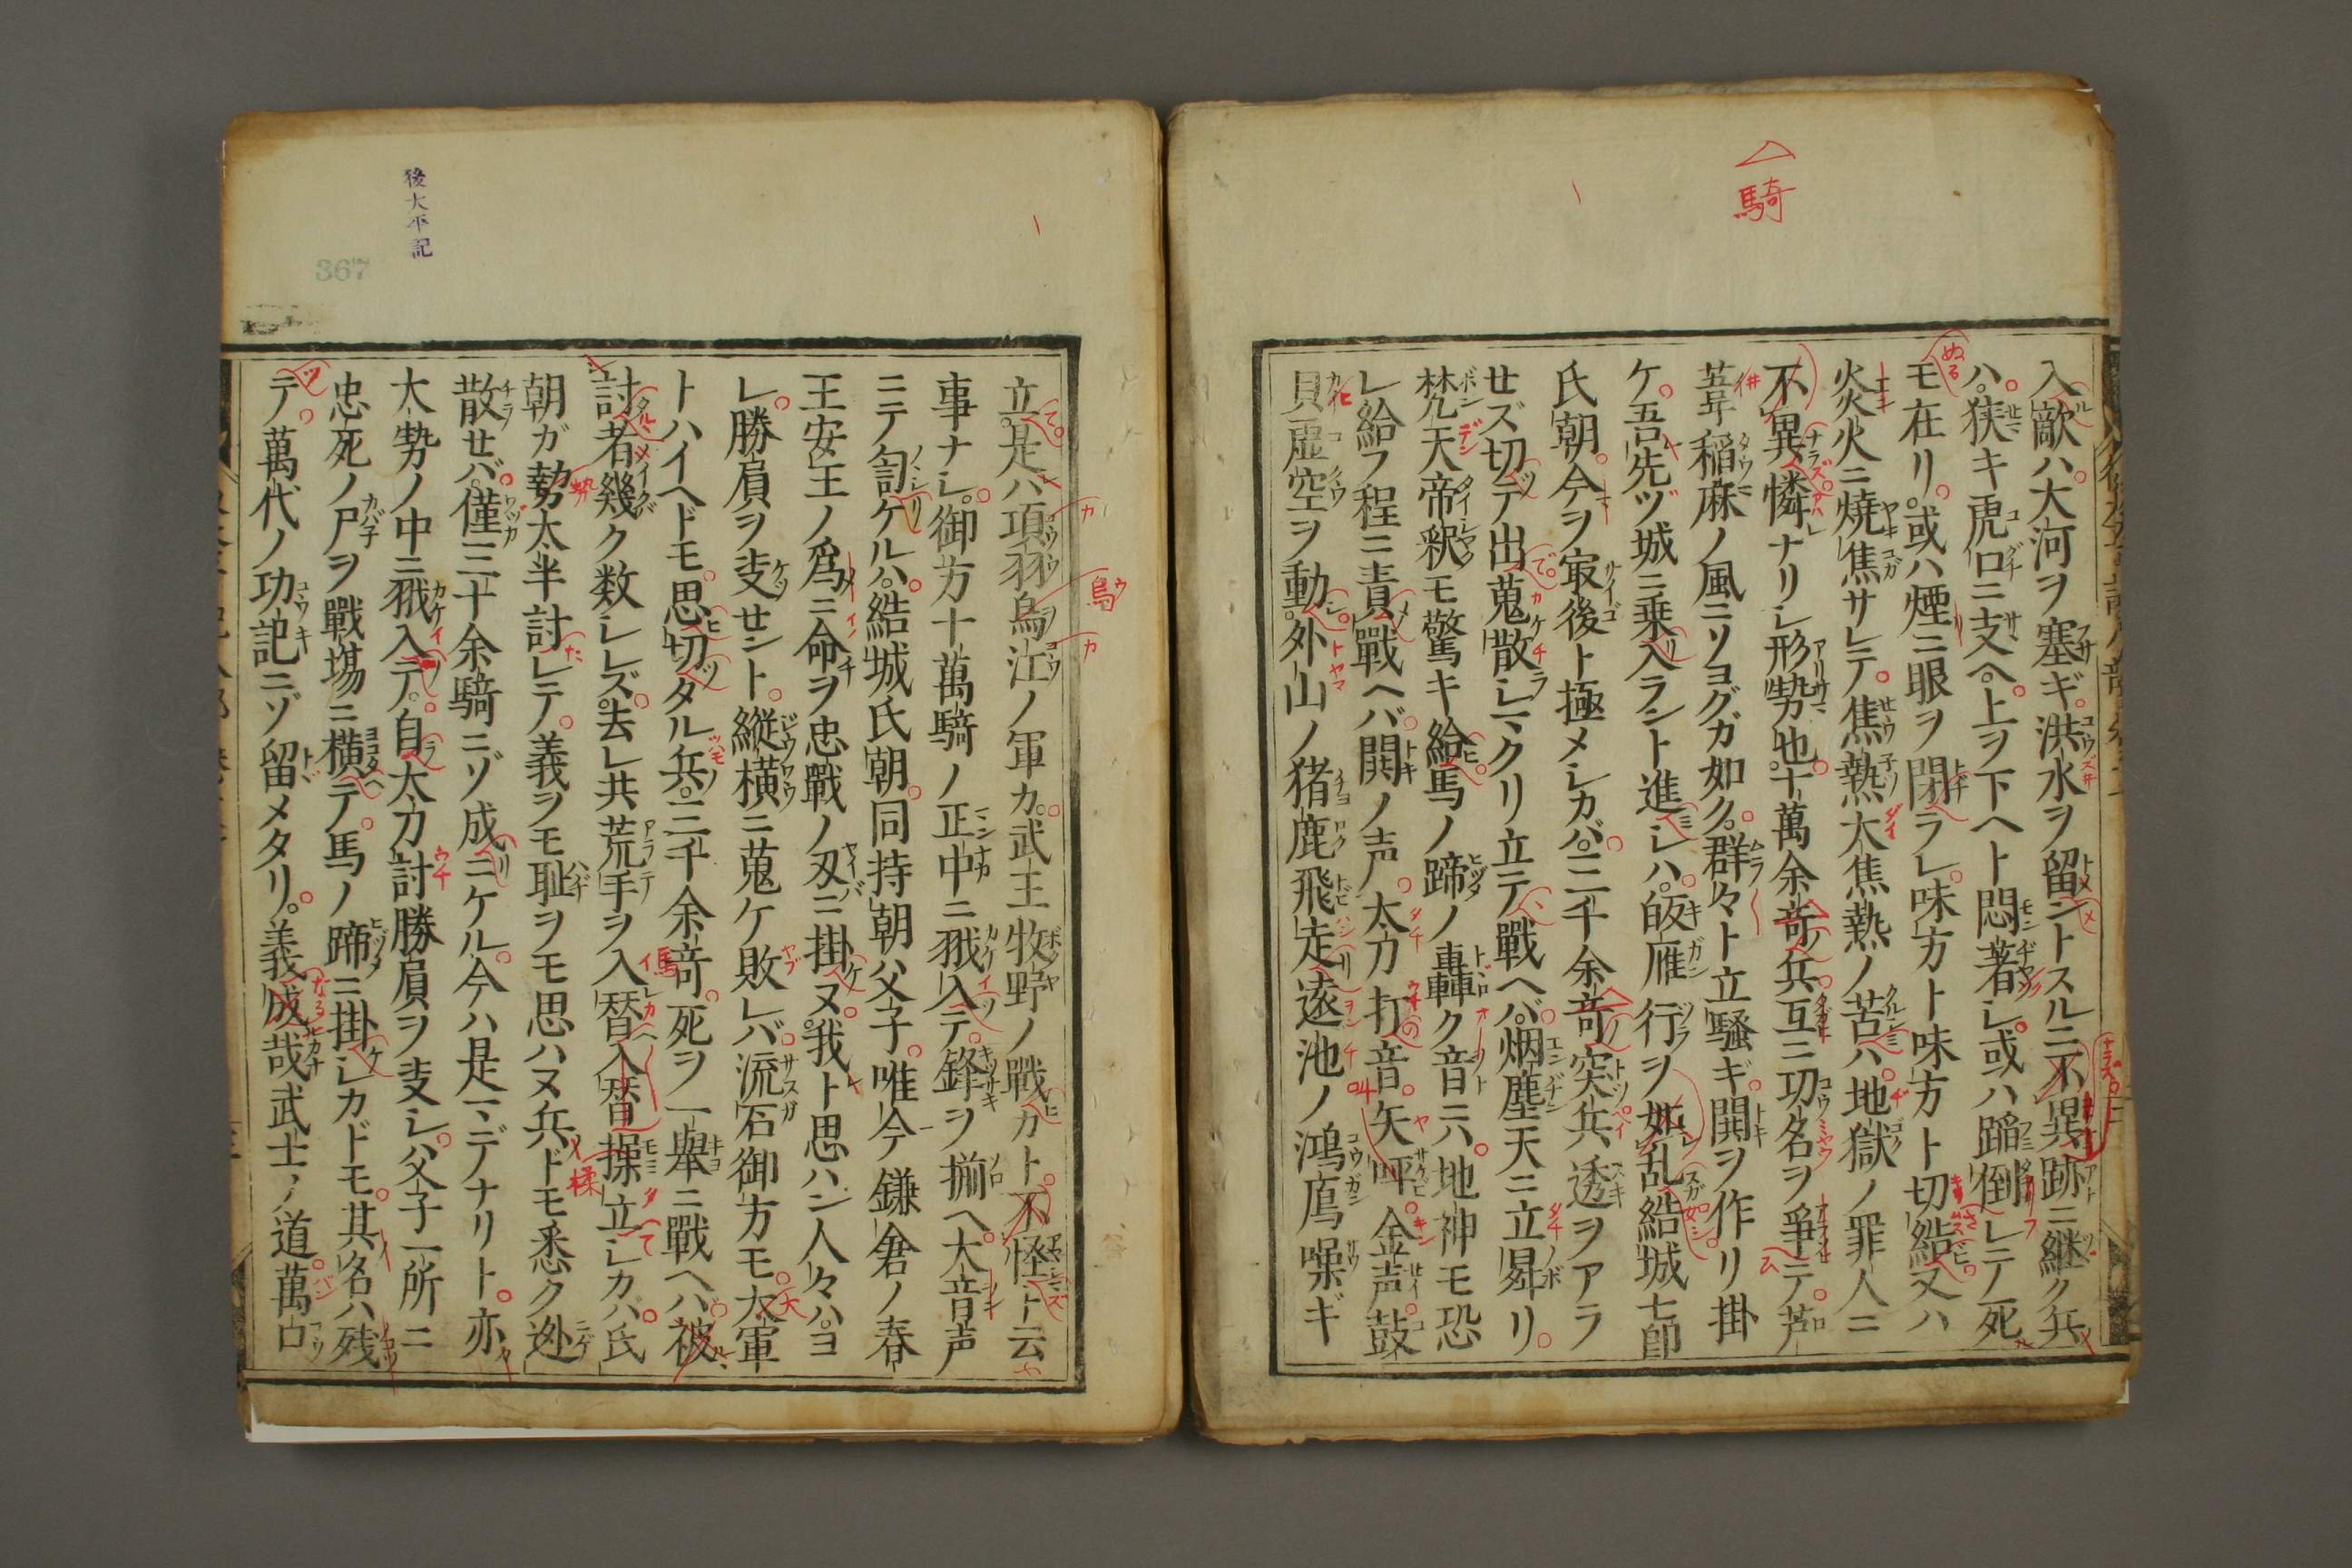 騎
入敵ハ大河ヲ塞ギ洪水ヲ留ントスルニ不異跡ニ継ク兵
ハ狭キ虎口ニ支ヘ上ヲ下ヘト悶著シ或ハ蹈倒レテ死
モ在リ或ハ煙ニ眼ヲ閉ラレ味方ト味方ト切結又ハ
炎火ニ焼焦サレテ焦熱大焦熱ノ苦ハ地獄ノ罪人ニ
不異憐ナリシ形勢也十萬余竒兵互ニ功名ヲ爭テ芦
葦稲麻ノ風ニソヨグガ如ク群々ト立騒ギ鬨ヲ作リ掛
ケ吾先ヅ城ニ乗入ラント進シハ皈雁行ヲ如乱結城七郎
氏朝今ヲ寂後ト極メシカバ三千余竒突兵透ヲアラ
セズ切テ出蒐散シマクリ立テ戰ヘバ烟塵天ニ立昇リ
梵天帝釈モ驚キ給馬ノ蹄ノ轟ク音ニハ地神モ恐
レ給フ程ニ責戰ヘバ鬨ノ声太刀打音矢呼金声鼓
貝虚空ヲ動外山ノ猪鹿飛走遠池ノ鴻鳫噪ギ
後太平記
367
立是ハ項羽烏江ノ軍カ武王牧野ノ戰カト不怪ト云
事ナシ御方十萬騎ノ正中ニ戕入テ鋒ヲ揃ヘ大音声
ニテ訇ケルハ結城氏朝同持朝父子唯今鎌倉ノ春
王安王ノ爲ニ命ヲ忠戰ノ刄ニ掛ヌ我ト思ハン人々ハヨ
レ勝負ヲ支セント縱横ニ蒐ケ敗レバ流石御方モ大軍
トハイヘドモ思切タル兵三千余竒死ヲ一舉ニ戰ヘバ被
討者幾ク数シレズ去レ共荒手ヲ入替入替揉立シカバ氏
朝ガ勢太半討レテ義ヲモ恥ヲモ思ハヌ兵ドモ悉ク迯
散セバ僅三十余騎ニゾ成ニケル今ハ是マデナリト亦
大勢ノ中ニ戕入テ自太刀討勝負ヲ支シ父子一所ニ
忠死ノ尸ヲ戰場ニ横テ馬ノ蹄ニ掛シカドモ其名ハ残
テ萬代ノ功記ニゾ留メタリ義成哉武士ノ道萬古